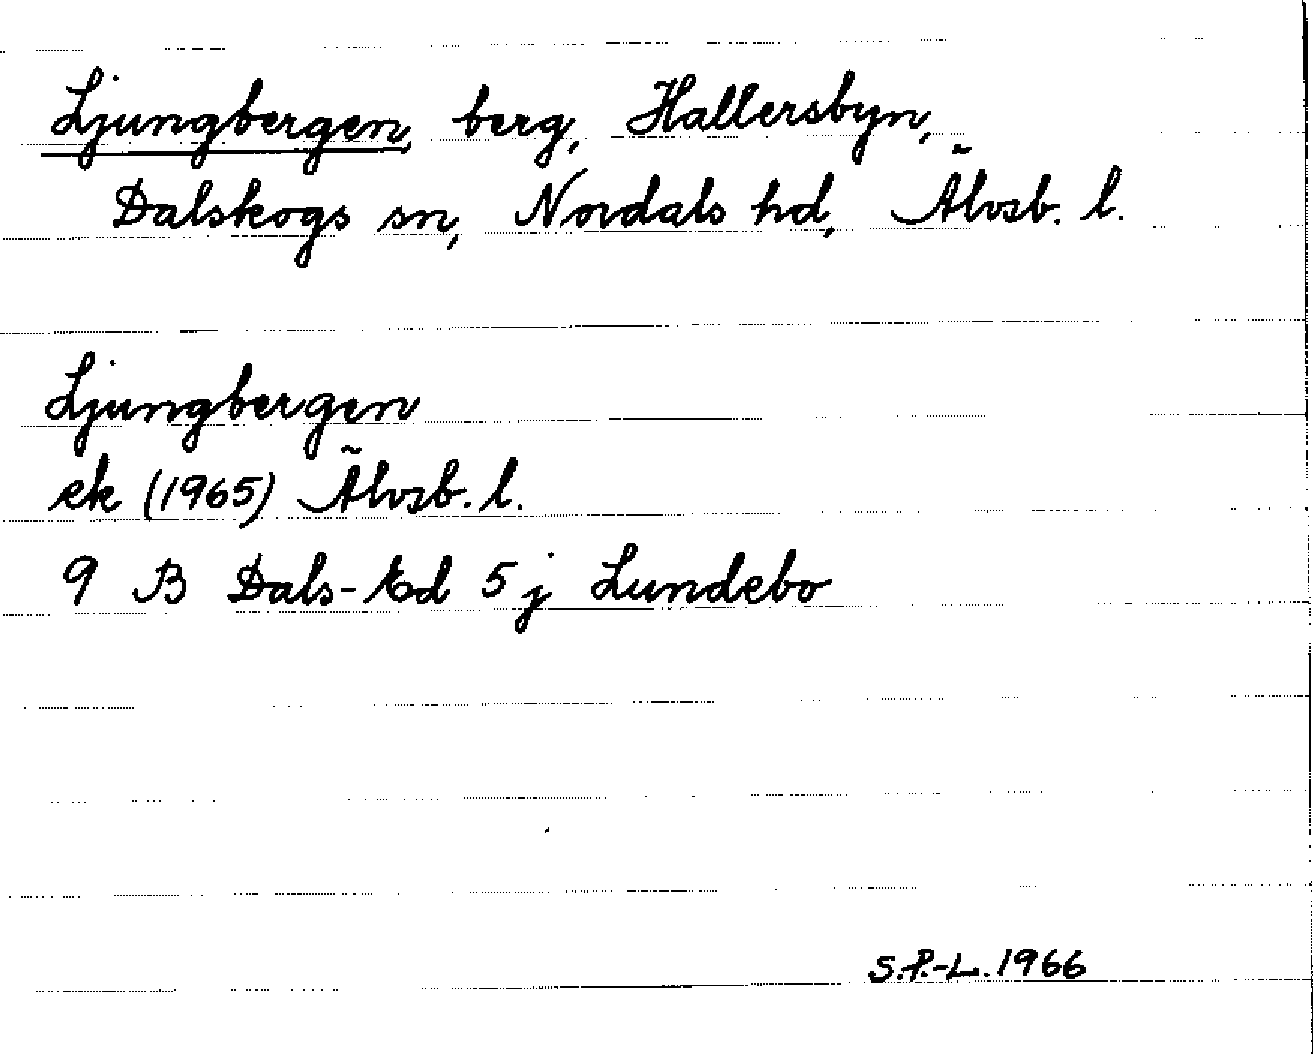 Ljungbergen, berg, Hallersbyn,
Dalskogs sn, Nordals hd, Älvsb. l.
Ljungbergen
ek (1965) Älvsb. l.
9 B Dals-Ed 5 j Lundebo
S.P.-L. 1966